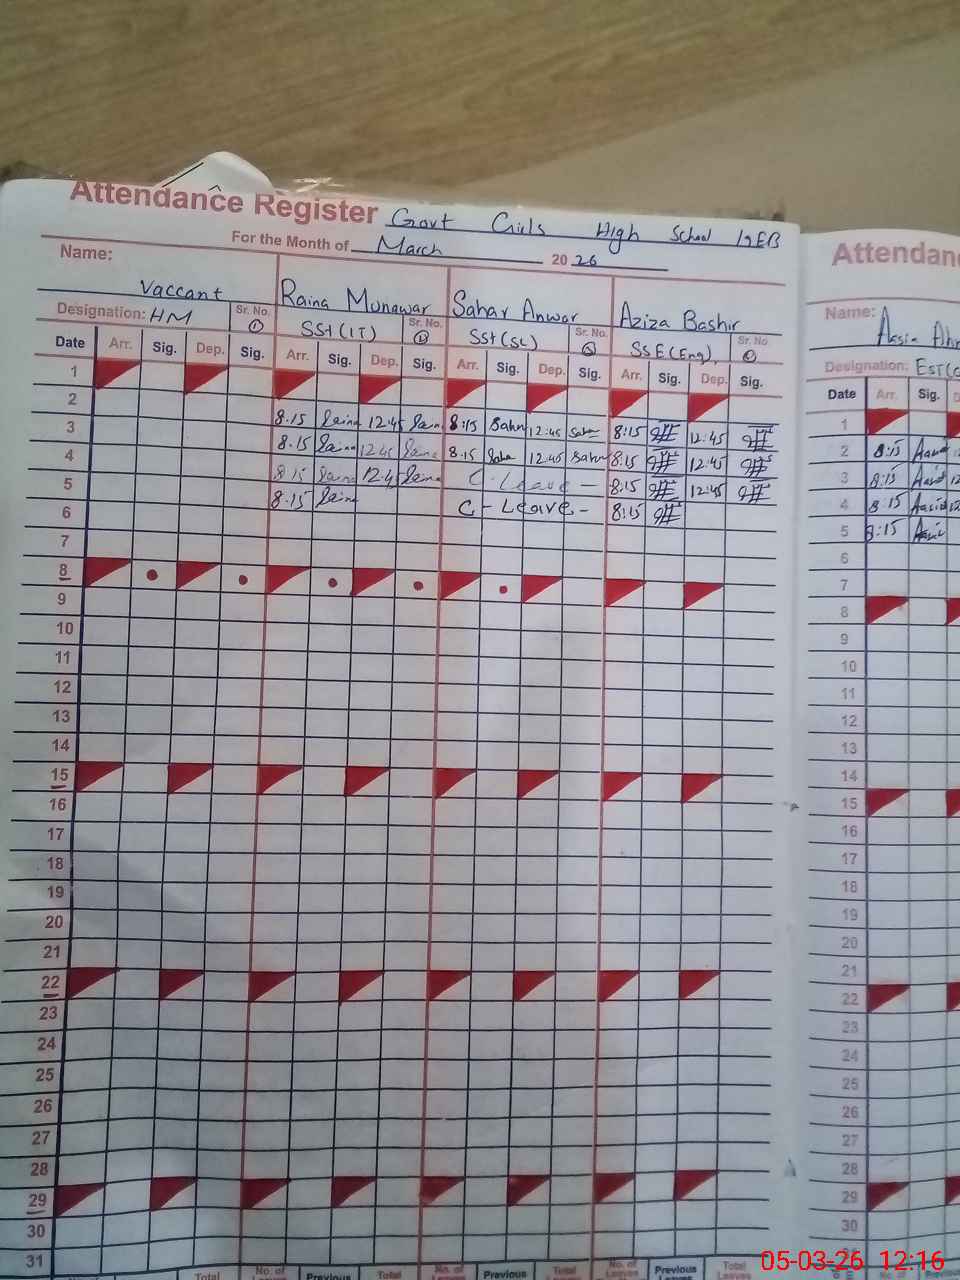 Attendance Register Govt Girls High School 12EB
For the Month of March 2026
Name: Vaccant Raina Munawar Sahar Anwar Aziza Bashir
Designation: HM Sr. No. 1 SSt (IT) Sr. No. SSt (SC) Sr. No. SSE (Eng). Sr. No.
Date Arr. Sig. Dep. Sig. Arr. Sig. Dep. Sig. Arr. Sig. Dep. Sig. Arr. Sig. Dep. Sig.
1
2 8.15 Raina 12.45 Raina 8:15 Sahar 12:45 Sahar 8:15 12:45
3 8.15 Raina 12.45 Raina 8.15 Sahar 12.45 Sahar 8:15 12:45
4 8.15 Raina 12.45 Raina C - Leave - 8:15 12:45
5 8.15 Raina C - Leave - 8:15
6
7
8
9
10
11
12
13
14
15
16
17
18
19
20
21
22
23
24
25
26
27
28
29
30
31
Total No. of Leaves Previous Total No. of Leaves Previous Total No. of Leaves Previous Leaves Total Leaves
Attendan
Name: Asia
Designation: EST
Date Arr. Sig. D
1
2 8:15
3 8:15
4 8:15
5 8:15
6
7
8
9
10
11
12
13
14
15
16
17
18
19
20
21
22
23
24
25
26
27
28
29
30
05-03-26 12:16